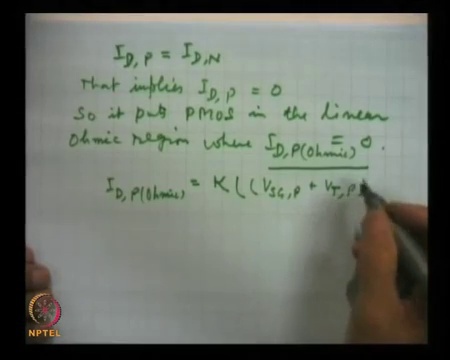 I_D,P = I_D,N
That implies I_D,P = 0
So it puts PMOS in the linear
Ohmic region where I_D,P(Ohmic) = 0.
I_D,P(Ohmic) = K((V_SG,P + V_T,P)
NPTEL